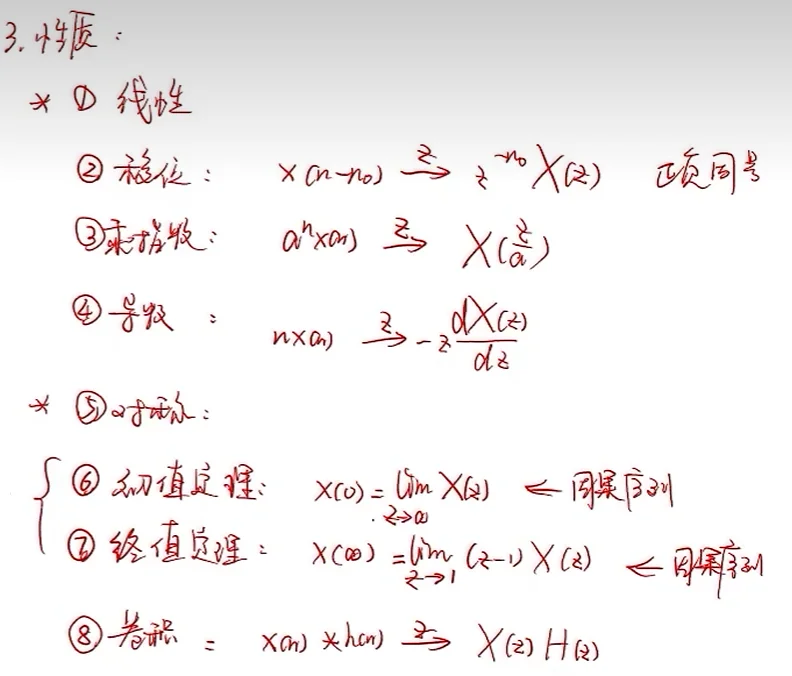 3. 性质：
* ① 线性
② 移位： x(n-n₀) —z→ z^{-n₀} X(z) 正负同号
③ 乘指数： aⁿx(n) —z→ X(z/a)
④ 导数： nx(n) —z→ -z dX(z)/dz
* ⑤ 对称：
⑥ 初值定理： x(0) = lim_{z→∞} X(z) ← 因果序列
⑦ 终值定理： x(∞) = lim_{z→1} (z-1) X(z) ← 因果序列
⑧ 卷积： x(n) * h(n) —z→ X(z) H(z)